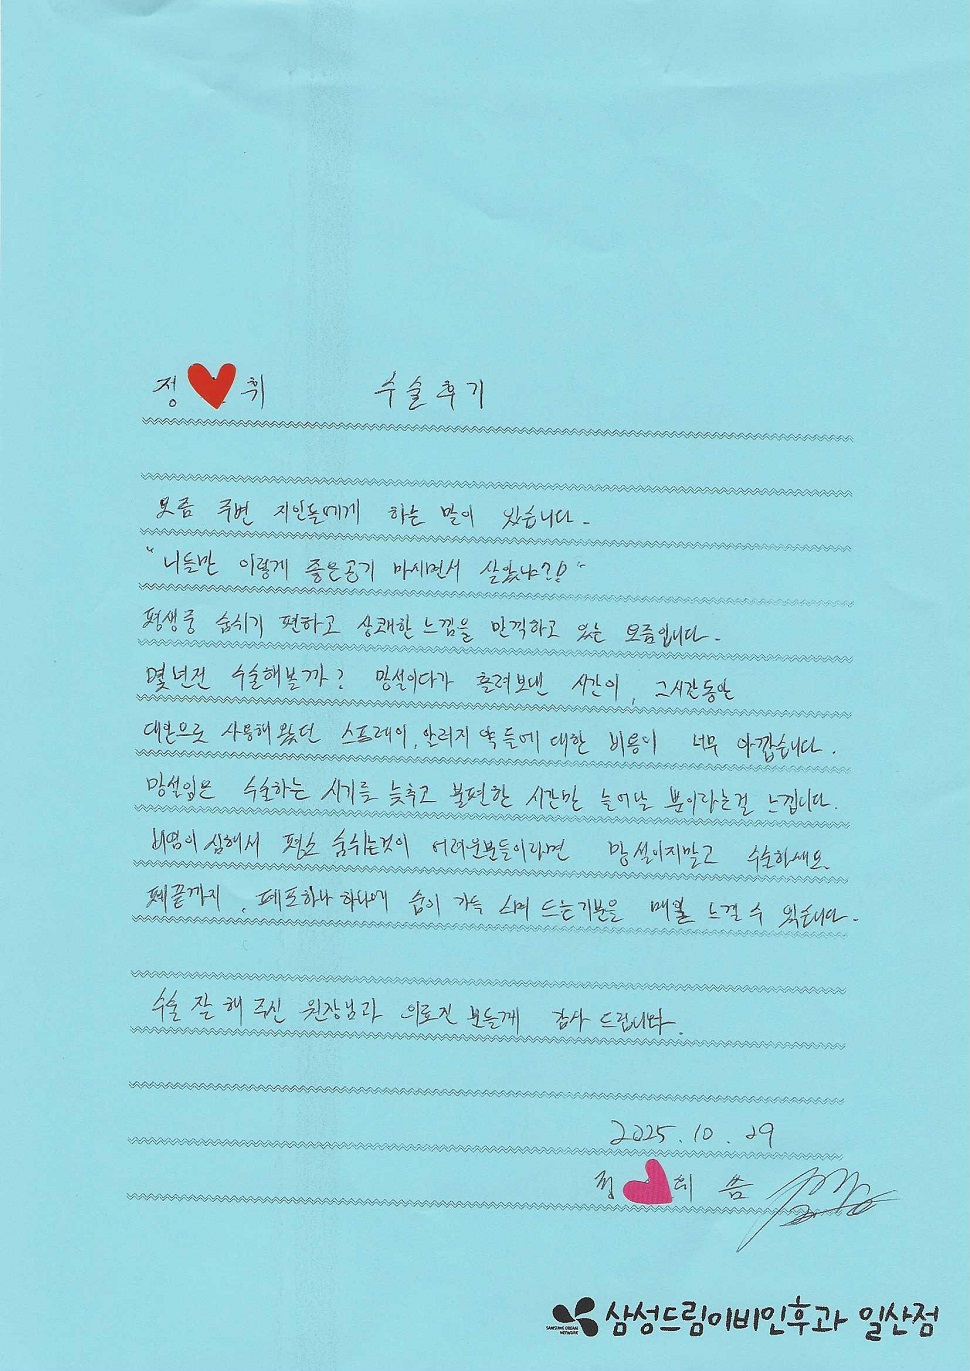 정 휘 수술후기
요즘 주변 지인들에게 하는 말이 있습니다.
"니들만 이렇게 좋은공기 마시면서 살았냐?!"
평생중 숨쉬기 편하고 상쾌한 느낌을 만끽하고 있는 요즘입니다.
몇년전 수술해볼까? 망설이다가 흘려보낸 시간이, 그시간동안
대안으로 사용해 왔던 스프레이, 알러지 약 들에 대한 비용이 너무 아깝습니다.
망설임은 수술하는 시기를 늦추고 불편한 시간만 늘어날 뿐이라는걸 느낍니다.
비염이 심해서 평소 숨쉬는것이 어려운분들이라면 망설이지말고 수술하세요.
폐끝까지, 폐포하나 하나에 숨이 가득 스며 드는기분을 매일 느낄 수 있습니다.
수술 잘 해 주신 원장님과 의료진 분들께 감사 드립니다.
2025.10.29
정 휘 씀
SAMSUNG DREAM NETWORK 삼성드림이비인후과 일산점